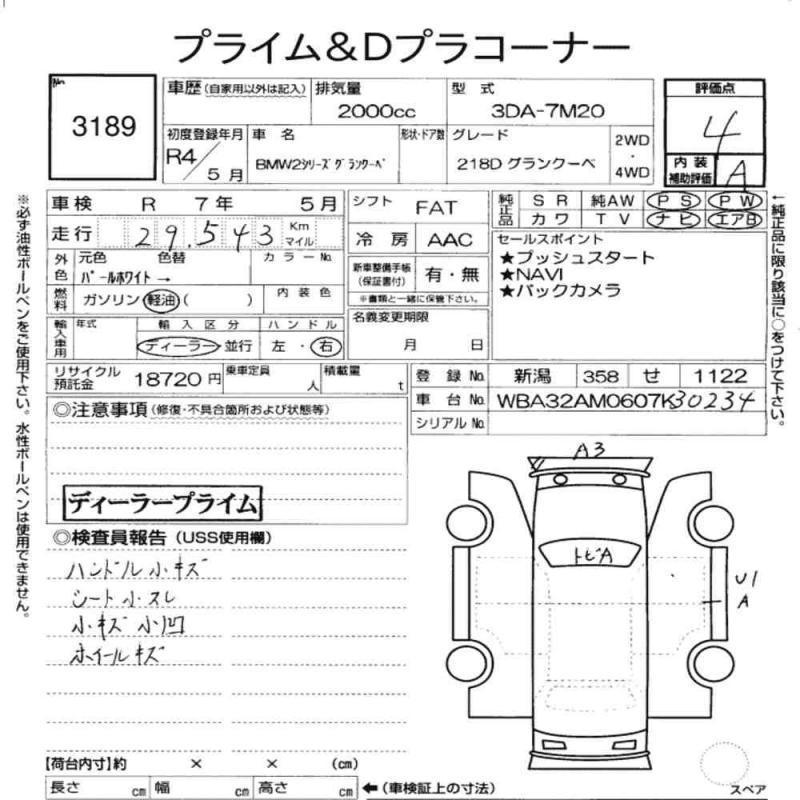 プライム&Dプラコーナー
No.
3189
車歴 (自家用以外は記入)
排気量
2000cc
型 式
3DA-7M20
評価点
4
初度登録年月
R4/5月
車 名
BMW2シリーズグランクーペ
形状・ドア数
グレード
218D グランクーペ
2WD
・
4WD
内装
補助評価
A
車検 R 7年 5月
走行 29,543 Km マイル
外色
元色 色替 カラーNo.
パールホワイト →
燃料
ガソリン 軽油 ( ) 内装色
輸入車用
年式 輸入区分 ハンドル
ディーラー 並行 左・右
リサイクル預託金 18720円
乗車定員 人
積載量 t
シフト FAT
冷房 AAC
新車整備手帳(保証書付) 有・無
※書類と一緒に保管下さい。
名義変更期限
月 日
純正品
SR 純AW PS PW
カワ TV ナビ エアB
セールスポイント
★プッシュスタート
★NAVI
★バックカメラ
登録No. 新潟 358 せ 1122
車台No. WBA32AM0607K30234
シリアルNo.
◎注意事項 (修復・不具合箇所および状態等)
ディーラープライム
◎検査員報告 (USS使用欄)
ハンドル小キズ
シート小スレ
小キズ小凹
ホイールキズ
A3
トビA
U1
A
【荷台内寸】約 × × (cm)
長さ cm 幅 cm 高さ cm ←(車検証上の寸法)
スペア
※必ず油性ボールペンをご使用下さい。水性ボールペンは使用できません。
←純正品に限り該当に○をつけて下さい。